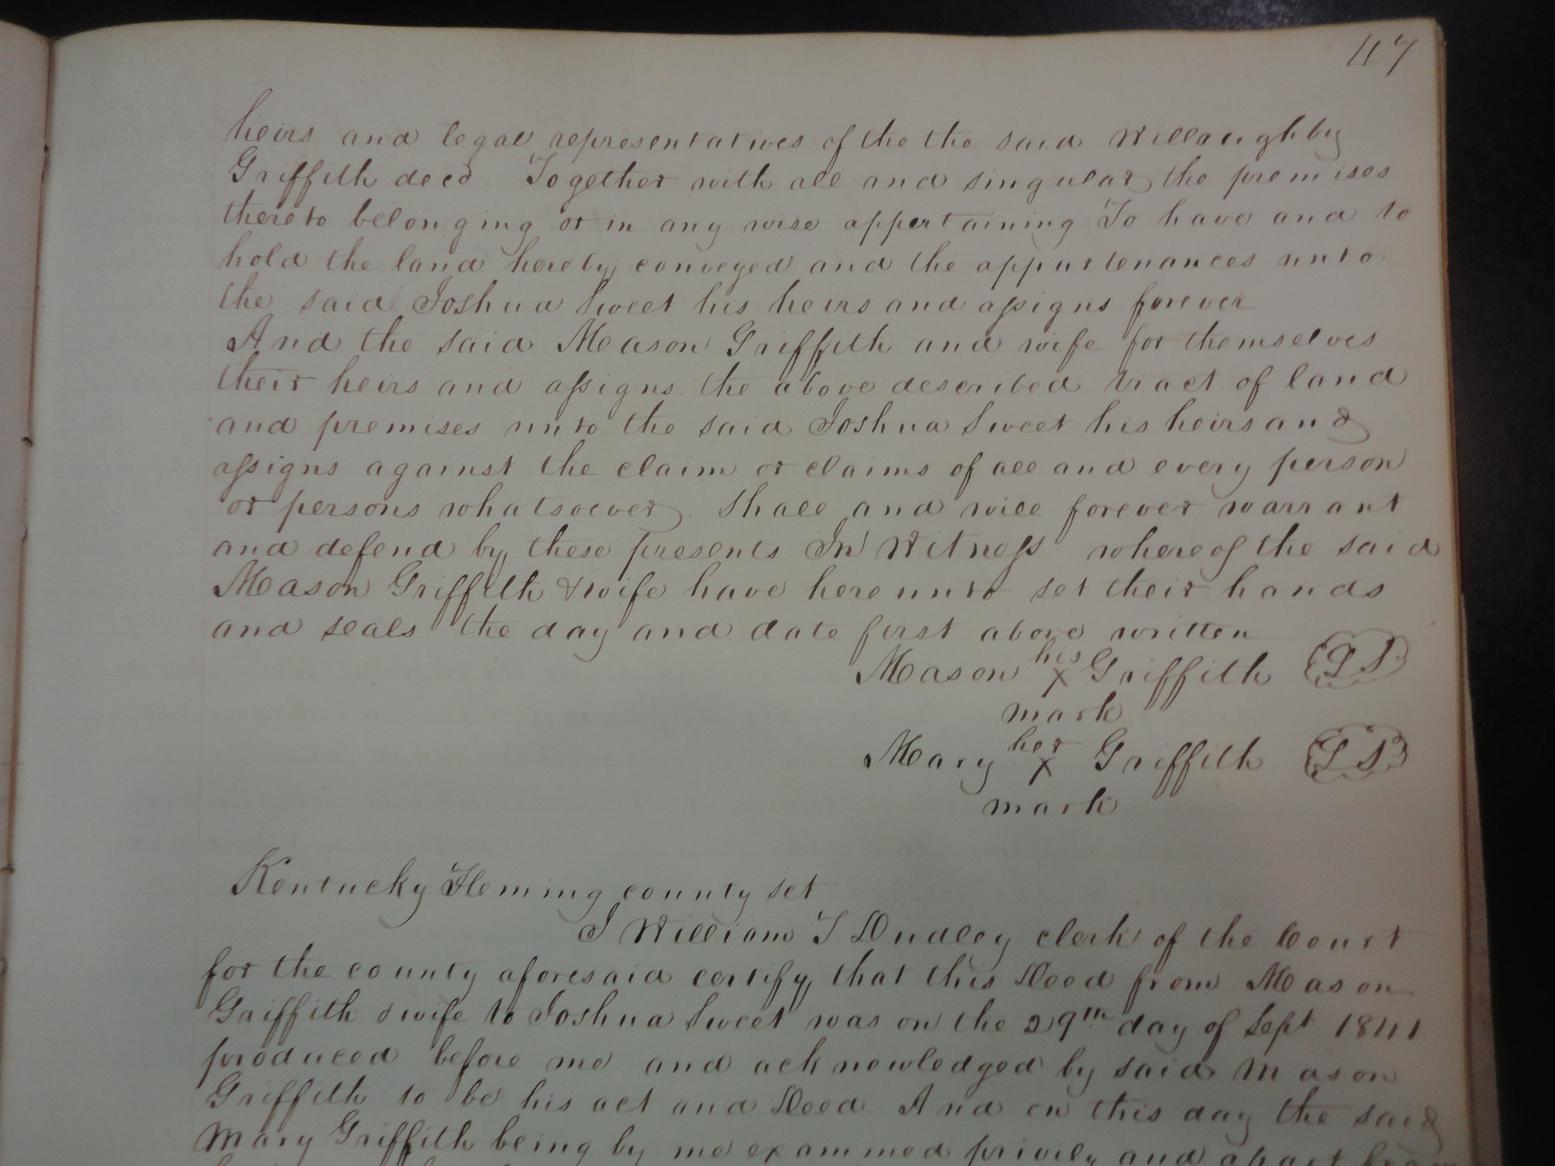 47
heirs and legal representatives of the the said Willoughby
Griffith decd Together with all and singular the premises
thereto belonging or in any wise appertaining To have and to
hold the land hereby conveyed and the appurtenances unto
the said Joshua Sweet his heirs and assigns forever
And the said Mason Griffith and wife for themselves
their heirs and assigns the above described tract of land
and premises unto the said Joshua Sweet his heirs and
assigns against the claim or claims of all and every person
or persons whatsoever. Shall and will forever warrant
and defend by these presents In Witness whereof the said
Mason Griffith & wife have hereunto set their hands
and seals the day and date first above written
Mason his x Griffith LS
mark
Mary her x Griffith LS
mark
Kentucky Fleming county set
I William T Dudley clerk of the Court
for the county aforesaid certify, that this Deed from Mason
Griffith & wife to Joshua Sweet was on the 29th day of Sept 1841
produced before me and acknowledged by said Mason
Griffith to be his act and Deed. And on this day the said
Mary Griffith being by me examined privily and apart